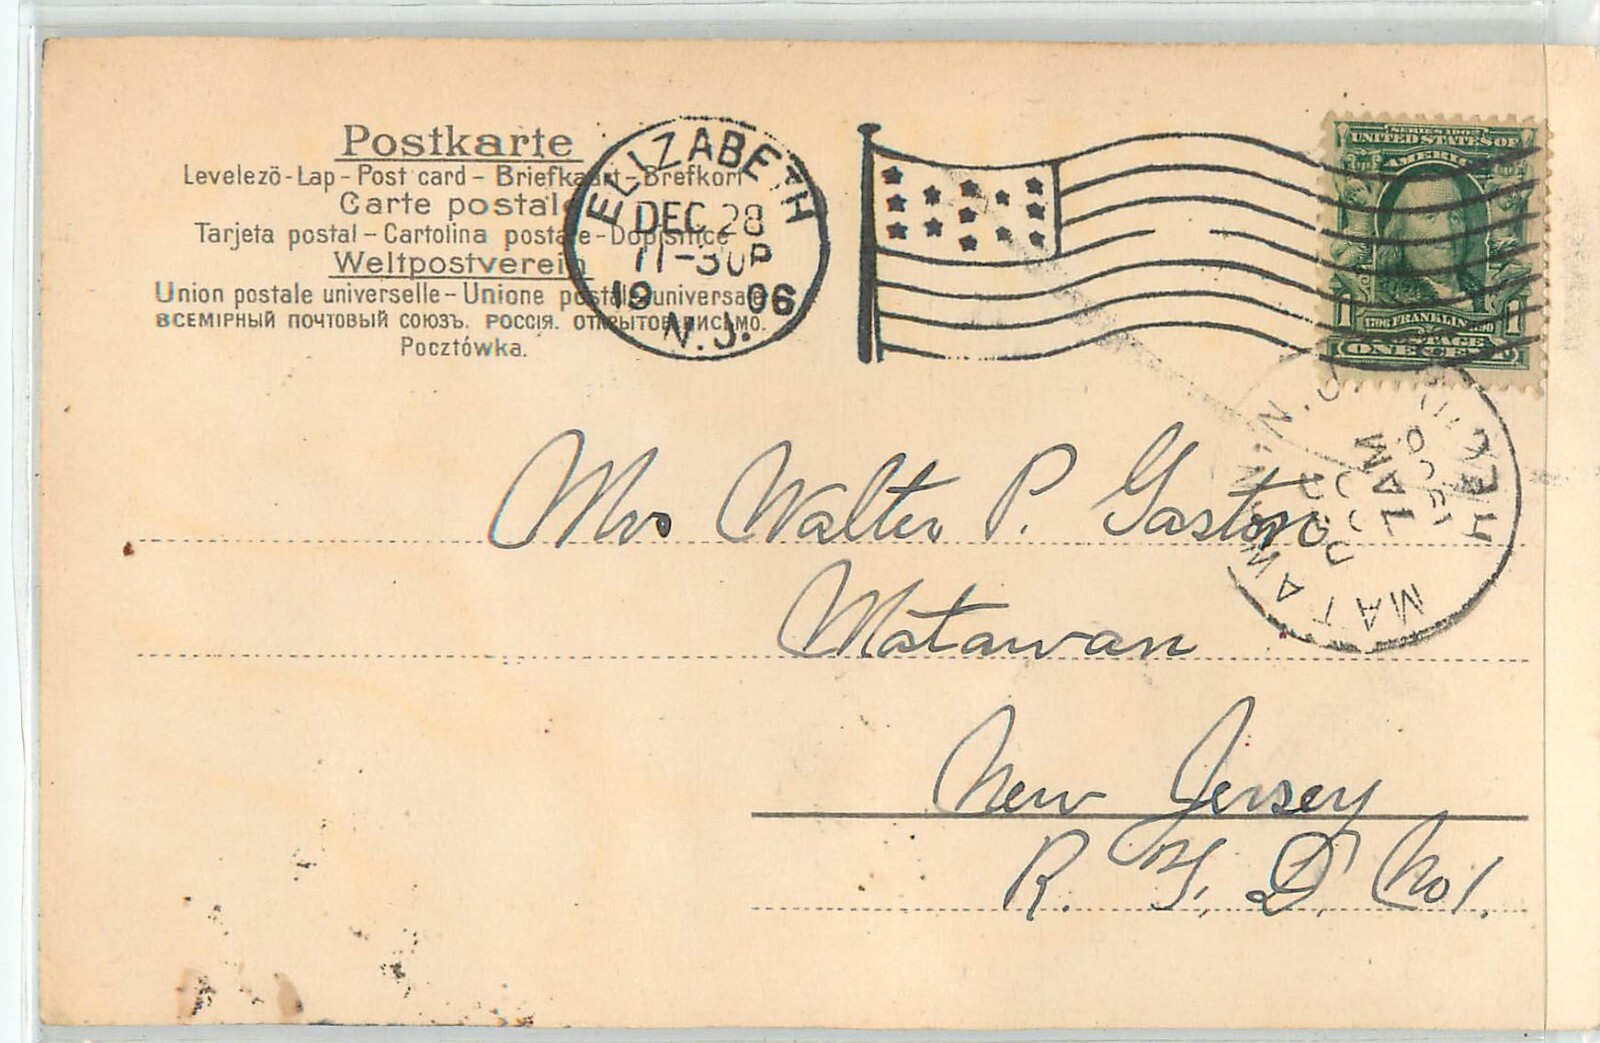 Postkarte
Levelezö-Lap - Post card - Briefkaart - Brefkort
Carte postale
Tarjeta postal - Cartolina postale - Dopisnice
Weltpostverein
Union postale universelle - Unione postale universale
ВСЕМІРНЫЙ ПОЧТОВЫЙ СОЮЗЪ. РОССІЯ. ОТКРЫТОЕ ПИСЬМО.
Pocztówka.
ELIZABETH
DEC 28
11-30P
19 06
N.J.
UNITED STATES OF
AMERICA
1 FRANKLIN 1
POSTAGE
ONE CENT
MATAWAN, N.J.
DEC
7 AM
Mrs Walter P. Gaston
Matawan
New Jersey
R. F. D. No 1.